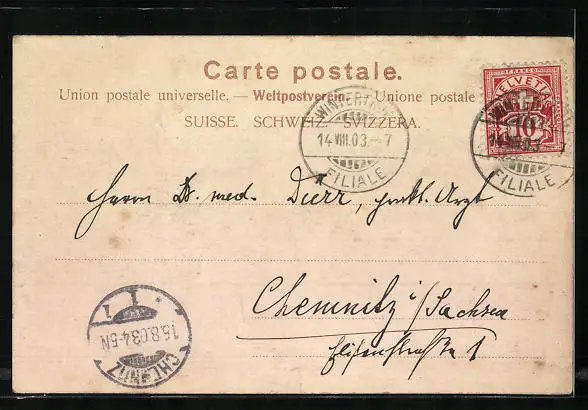 Carte postale.
Union postale universelle. — Weltpostverein. — Unione postale
SUISSE. SCHWEIZ. SVIZZERA.
HELVETIA
FRANCO
10
WINTERTHUR
14.VIII.03.–7
FILIALE
WINTERTHUR
14.VIII.03
FILIALE
Herrn Dr. med. Dierr, prakt. Arzt
Chemnitz i/Sachsen
Elisenstraße 1
15.8.03.4-5N
CHEMNITZ
1